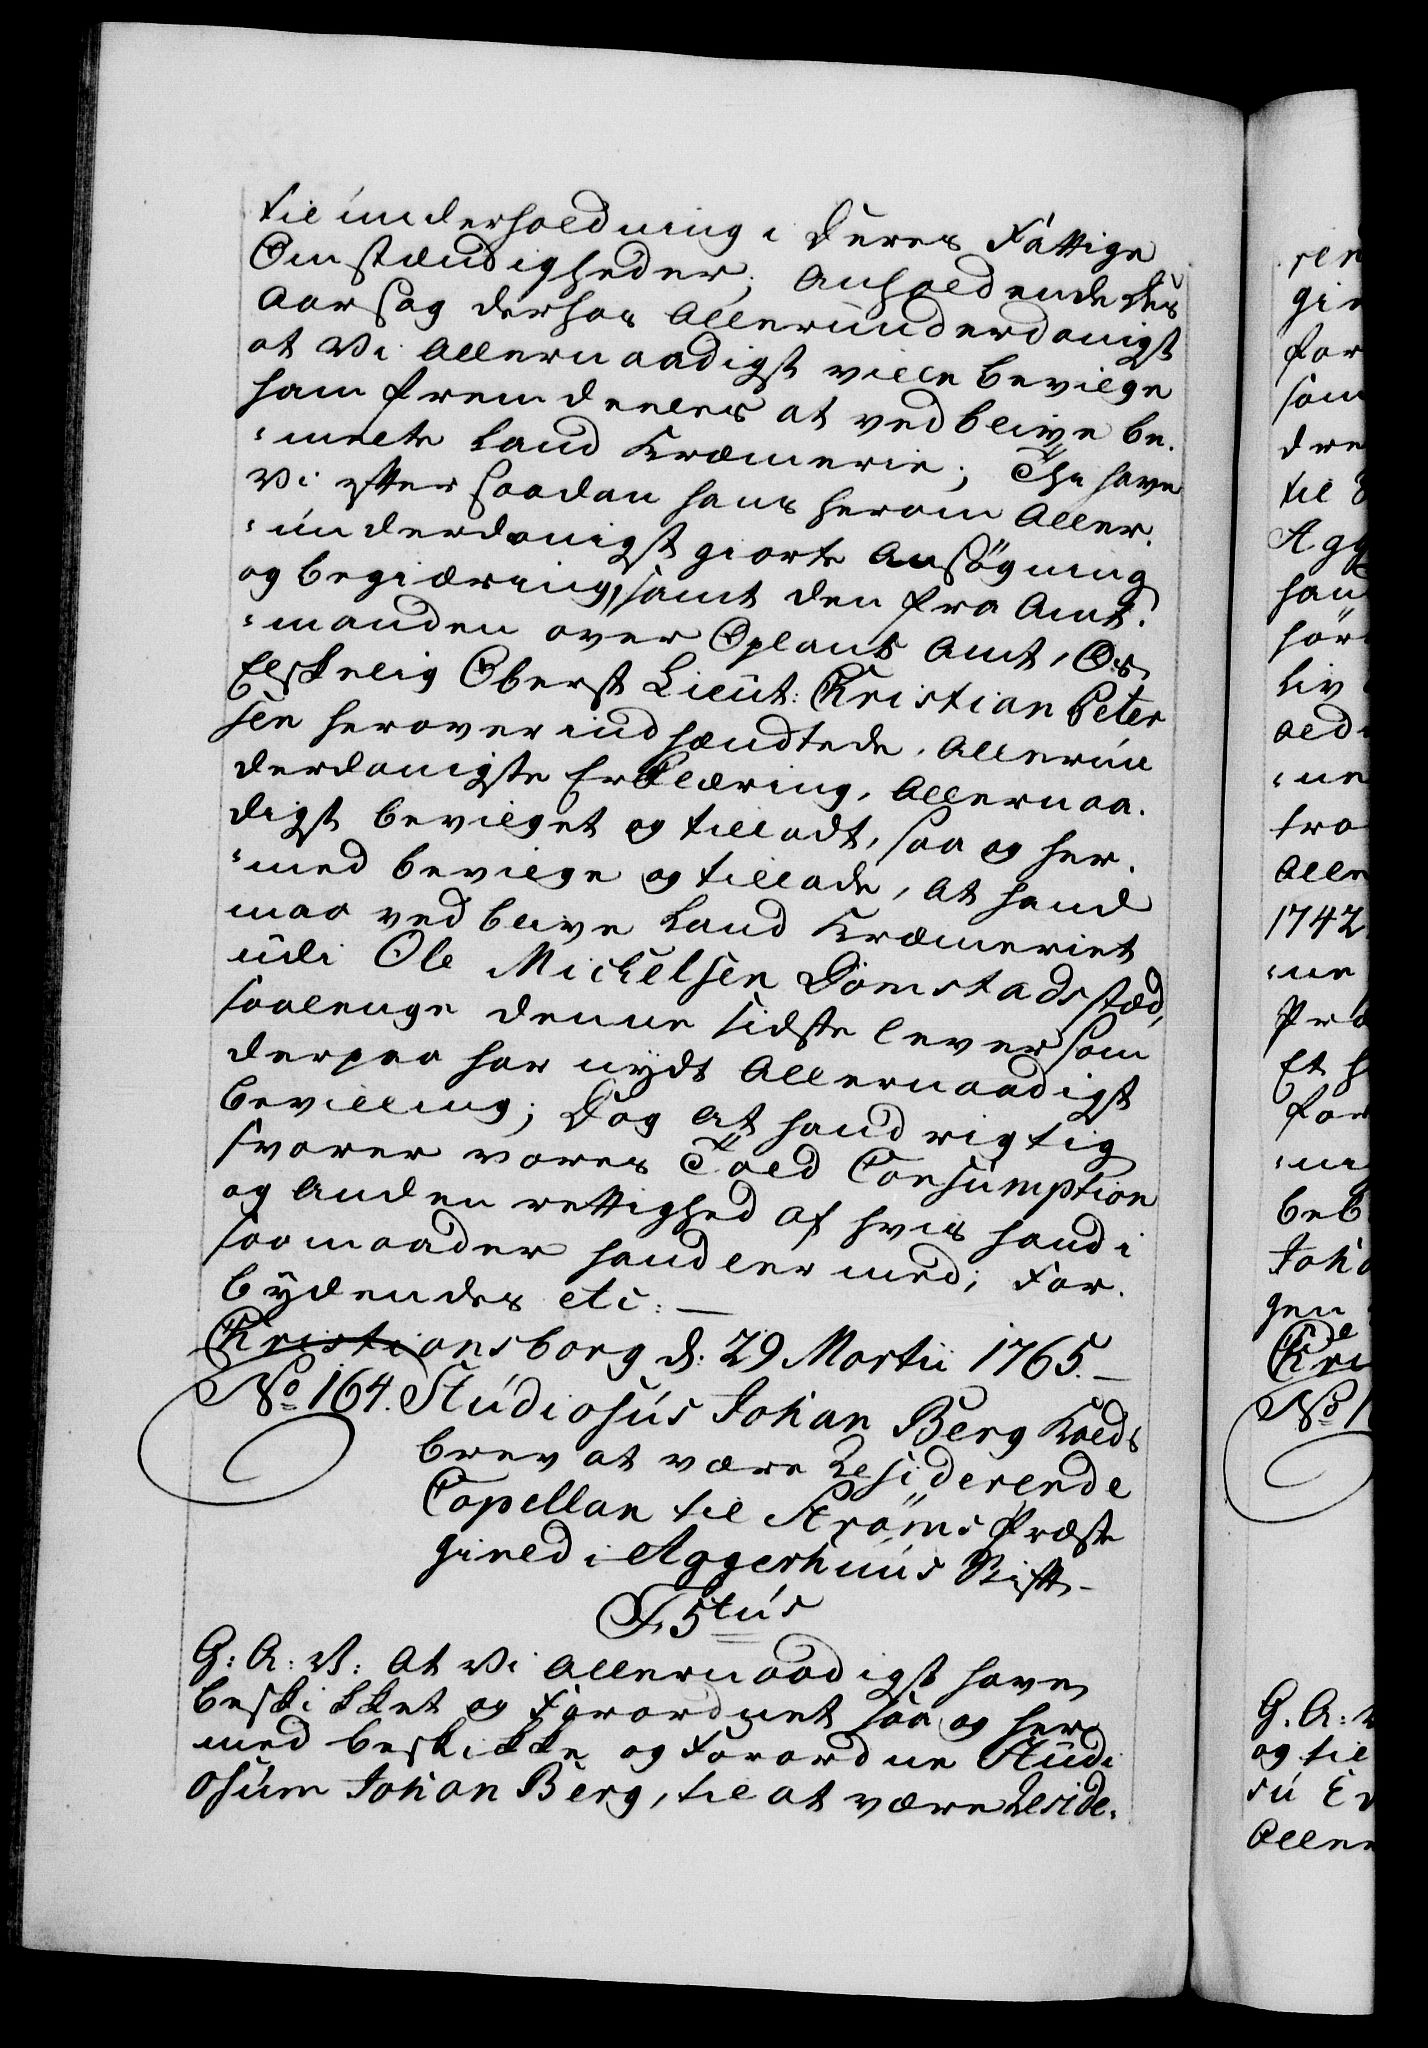 til underholdning i deres Fattige
Omstændigheder; Anholdende des
Aarsag derhos Allerunderdanigst
at Vi Allernaadigst ville bevilge
ham fremdeeles at vedblive be-
-melte Land Kræmerie; Tha have
Vi efter saadan hans herom Aller-
-underdanigst giorte Ansøgning
og begiæring, samt den fra Amt-
-manden over Oplands Amt, Os
Elskelig Oberst Lieut: Christian Peter
sen herover indhændtede, Allerun
derdanigste Erklæring, Allernaa-
digst bevilget og tilladt, saa og her-
-med bevilge og tillade, at hand
maa vedblive Land Kræmeriet
udi Ole Michelsen Dømstads stæd,
saalenge denne sidste lever som
derpaa har nydt Allernaadigst
bevilling; Dog at hand rigtig
svarer vores Told Consumption
og Anden rettighed af hvis hand i
saamaader handler med; For-
bydendes etc: —
Christiansborg d: 29 Martii 1765. —
No 164. Studiosus Johan Berg Kalds
brev at være Residerende
Capellan til Strøms Præste
gield i Aggerhuus Stift —
F. 5tus
G: A: V: At Vi Allernaadigst have
beskikket og Forordnet saa og her
med beskikke og Forordne Studi
osum Johan Berg, til at være Reside-
gie
for
som
til
Agg
han
Liv
1742
for
beb
Joha
gen
G. A:
og til